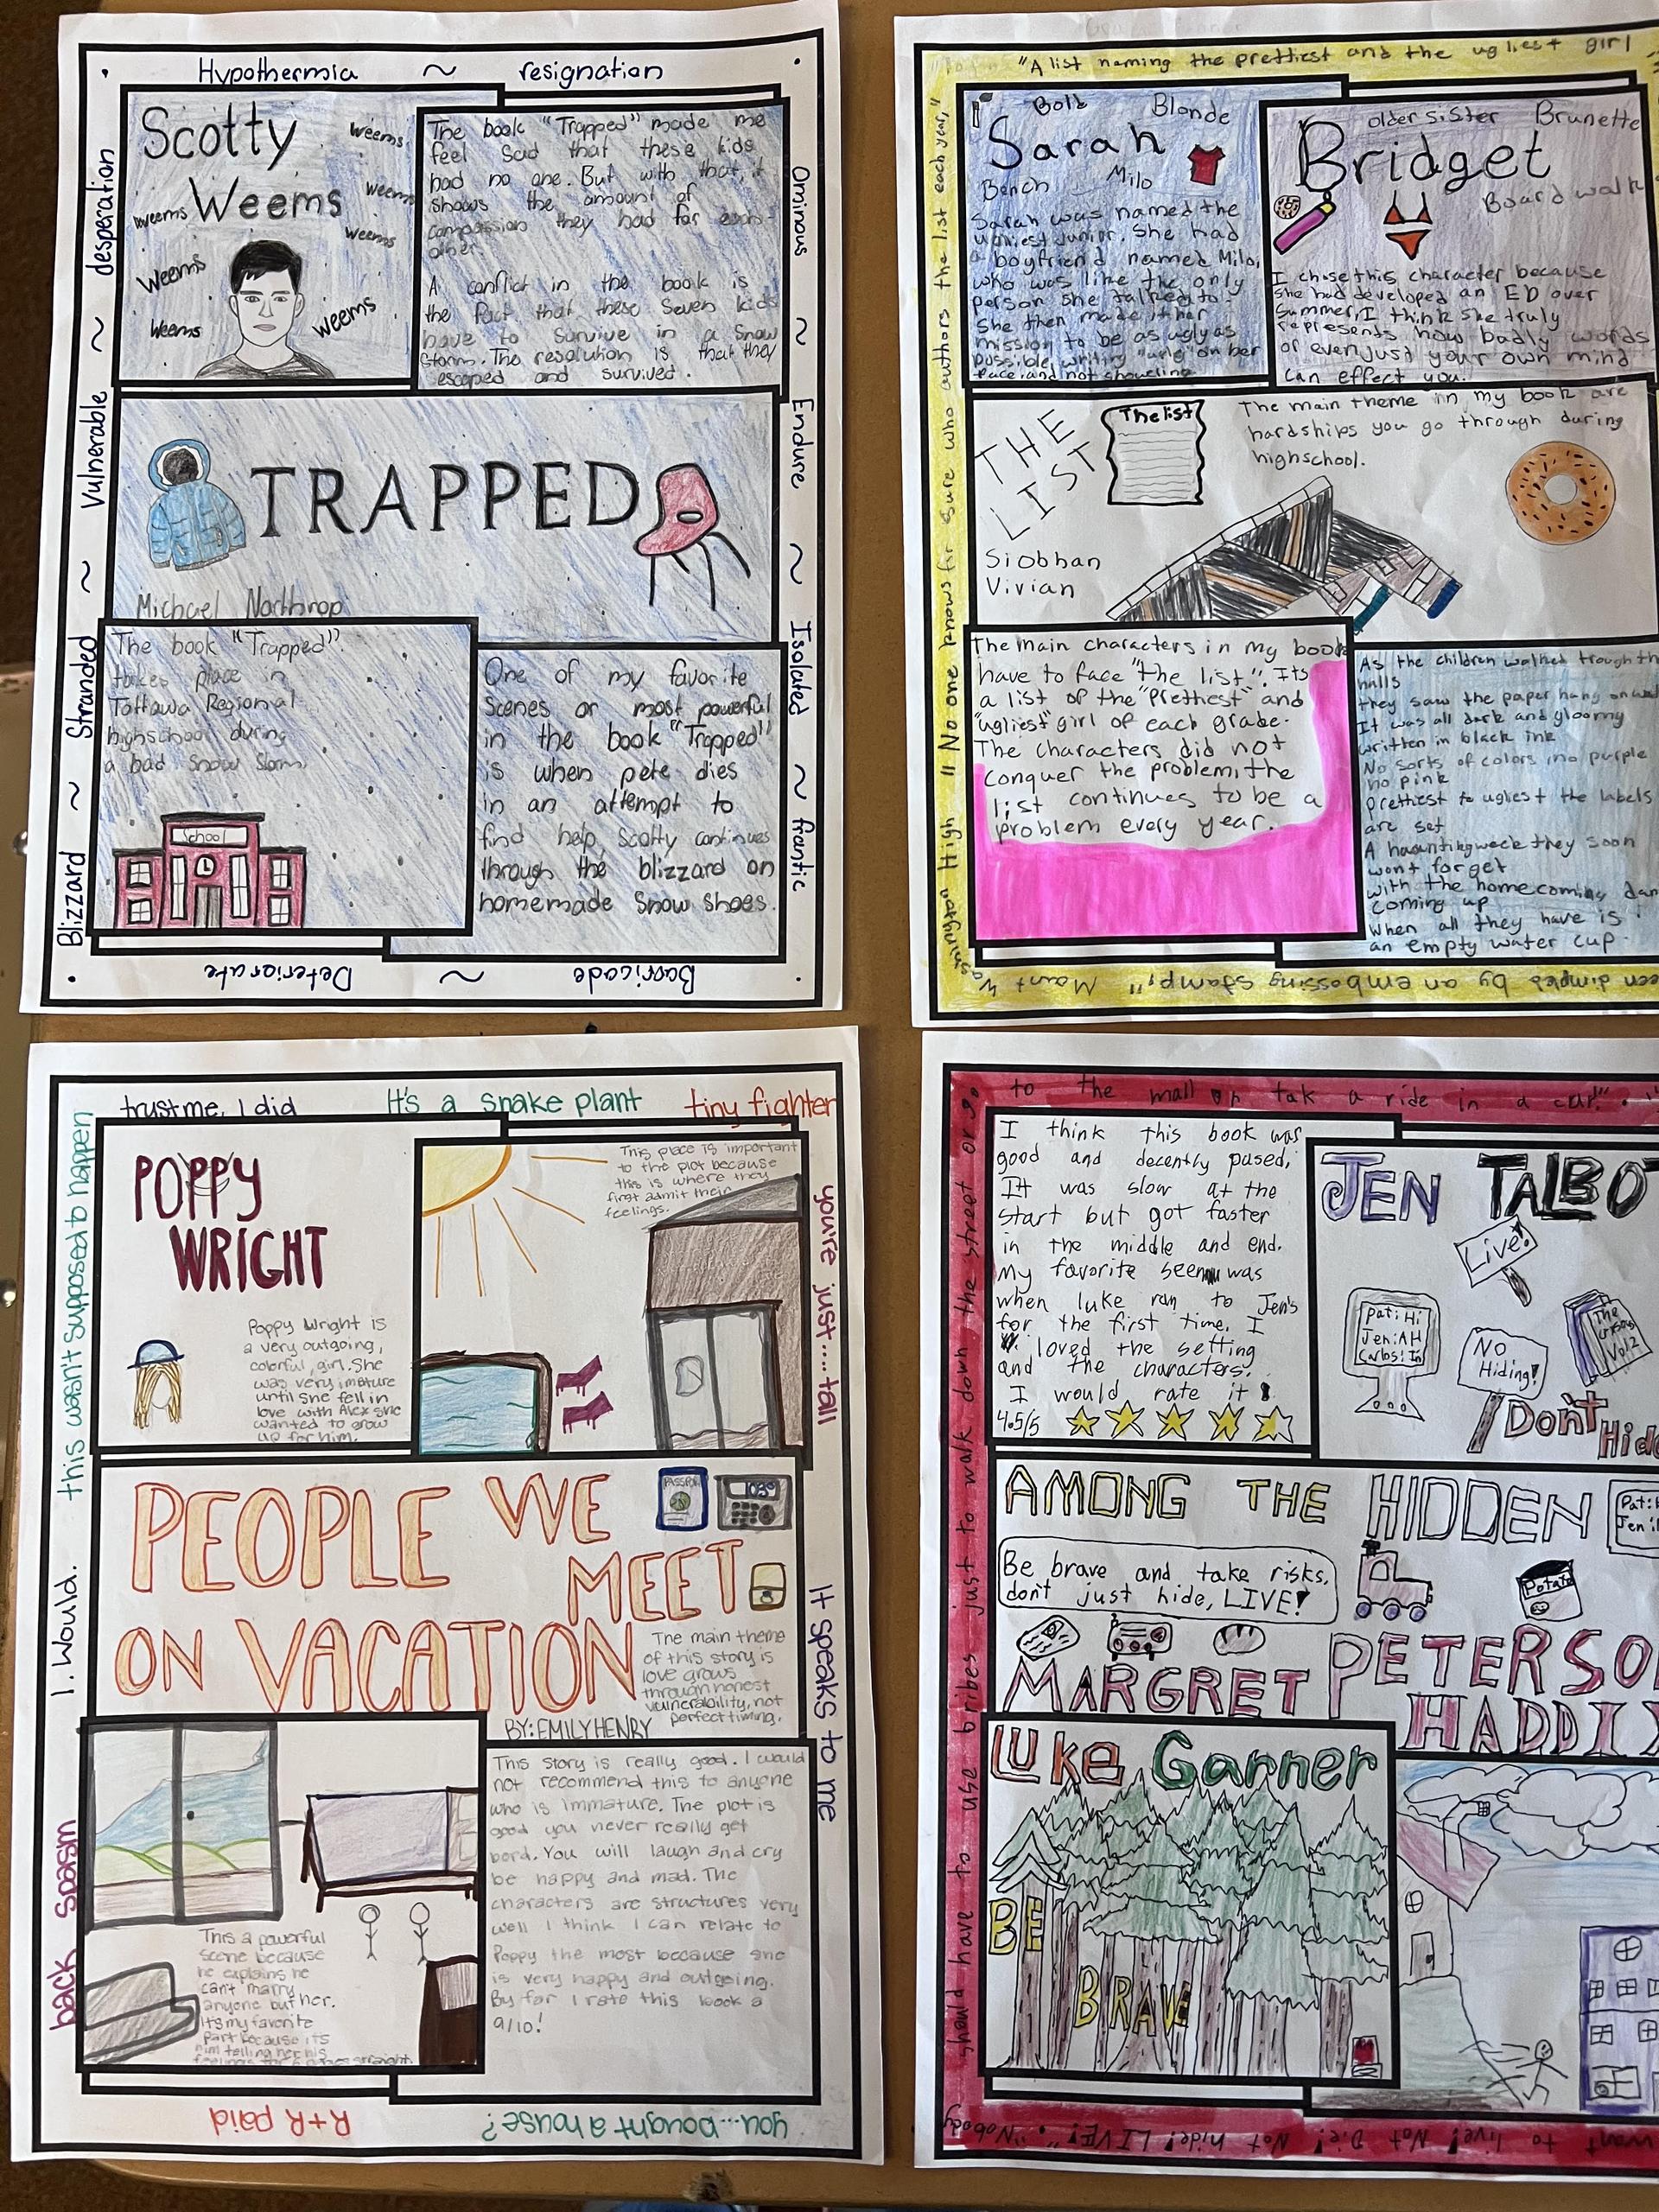 Hypothermia ~ resignation
desperation ~ Vulnerable ~ Stranded ~ Blizzard
Ominous ~ Endure ~ Isolated ~ frantic
Barricade ~ Deteriorate
Scotty
Weems
weems
weems
weems
weems
Weems
weems
Weems
The book "Trapped" made me
feel sad that these kids
had no one. But with that, it
shows the amount of
compassion they had for each-
other.
A conflict in the book is
the fact that these Seven kids
have to Survive in a Snow
Storm. The resolution is that they
escaped and survived.
TRAPPED
Michael Northrop
The book "Trapped"
takes place in
Tattawa Regional
highschool during
a bad snow storm.
School
One of my favorite
Scenes or most powerful
in the book "Trapped"
is when pete dies
in an attempt to
find help, Scotty continues
through the blizzard on
homemade Snow Shoes.
"A list naming the prettiest and the ugliest girl
een dimpled by an embossing stamp," Mount
Washington High || No one knows for sure who authors the list each year,"
Bold
Blonde
Sarah
Bench
Milo
Sarah was named the
ugliest junior. She had
a boyfriend named Milo,
who was like the only
person she talked to.
She then made it her
mission to be as ugly as
possible, writing "ugly" on her
face, and not showering
older sister
Brunette
Bridget
Board walk
I chose this character because
she had developed an ED over
Summer, I think she truly
represents how badly words
or even just your own mind
can effect you.
THE
LIST
The list
Siobhan
Vivian
The main theme in my book are
hardships you go through during
highschool.
The main characters in my book
have to face "the list". Its
a list of the "Prettest" and
"ugliest" girl of each grade.
The characters did not
conquer the problem, the
list continues to be a
problem every year.
As the children walked trough th
halls
they saw the paper hang on wal
It was all dark and gloomy
written in black ink
No sorts of colors, no purple
no pink
prettiest to ugliest the labels
are set
A haunting week they soon
wont forget
with the homecoming dan
coming up
When all they have is
an empty water cup.
trust me, I did
It's a snake plant
tiny fighter
this wasn't supposed to happen
I. Would.
back spasm
you're just....tall
It speaks to me
you...bought a house?
R+R paid
POPPY
WRIGHT
Poppy Wright is
a very outgoing,
colorful, girl. She
was very imature
until she fell in
love with Alex she
wanted to grow
up for him.
This place is important
to the plot because
this is where they
first admit their
feelings.
PEOPLE WE
MEET
ON VACATION
PASSPO
The main theme
of this story is
love grows
through honest
vulnerability, not
perfect timing.
BY: EMILY HENRY
This a powerful
scene because
he explains he
can't marry
anyone but her.
It's my favorite
part because its
him telling her his
This story is really good. I would
not recommend this to anyone
who is immature. The plot is
good you never really get
bord. You will laugh and cry
be happy and mad. The
characters are structures very
well I think I can relate to
Poppy the most because she
is very happy and outgoing.
By far I rate this book a
9/10!
to the mall or tak a ride in a car!".
should have to use bribes just to walk down the street or go
want to live! Not Die! Not hide! LIVE!". "Nobody
I think this book was
good and decently pased.
It was slow at the
start but got faster
in the middle and end.
My favorite seen was
when luke ran to Jen's
for the first time. I
loved the setting
and the characters.
I would rate it
4.5/5
JEN TALBOT
Live!
Pat: Hi
Jen: AH
Carlos: In
No
Hiding!
The
Vol 2
Don't
Hide
AMONG THE HIDDEN
Be brave and take risks,
don't just hide, LIVE!
Potato
MARGRET PETERSO
HADDIX
LUKE Garner
BE
BRAVE